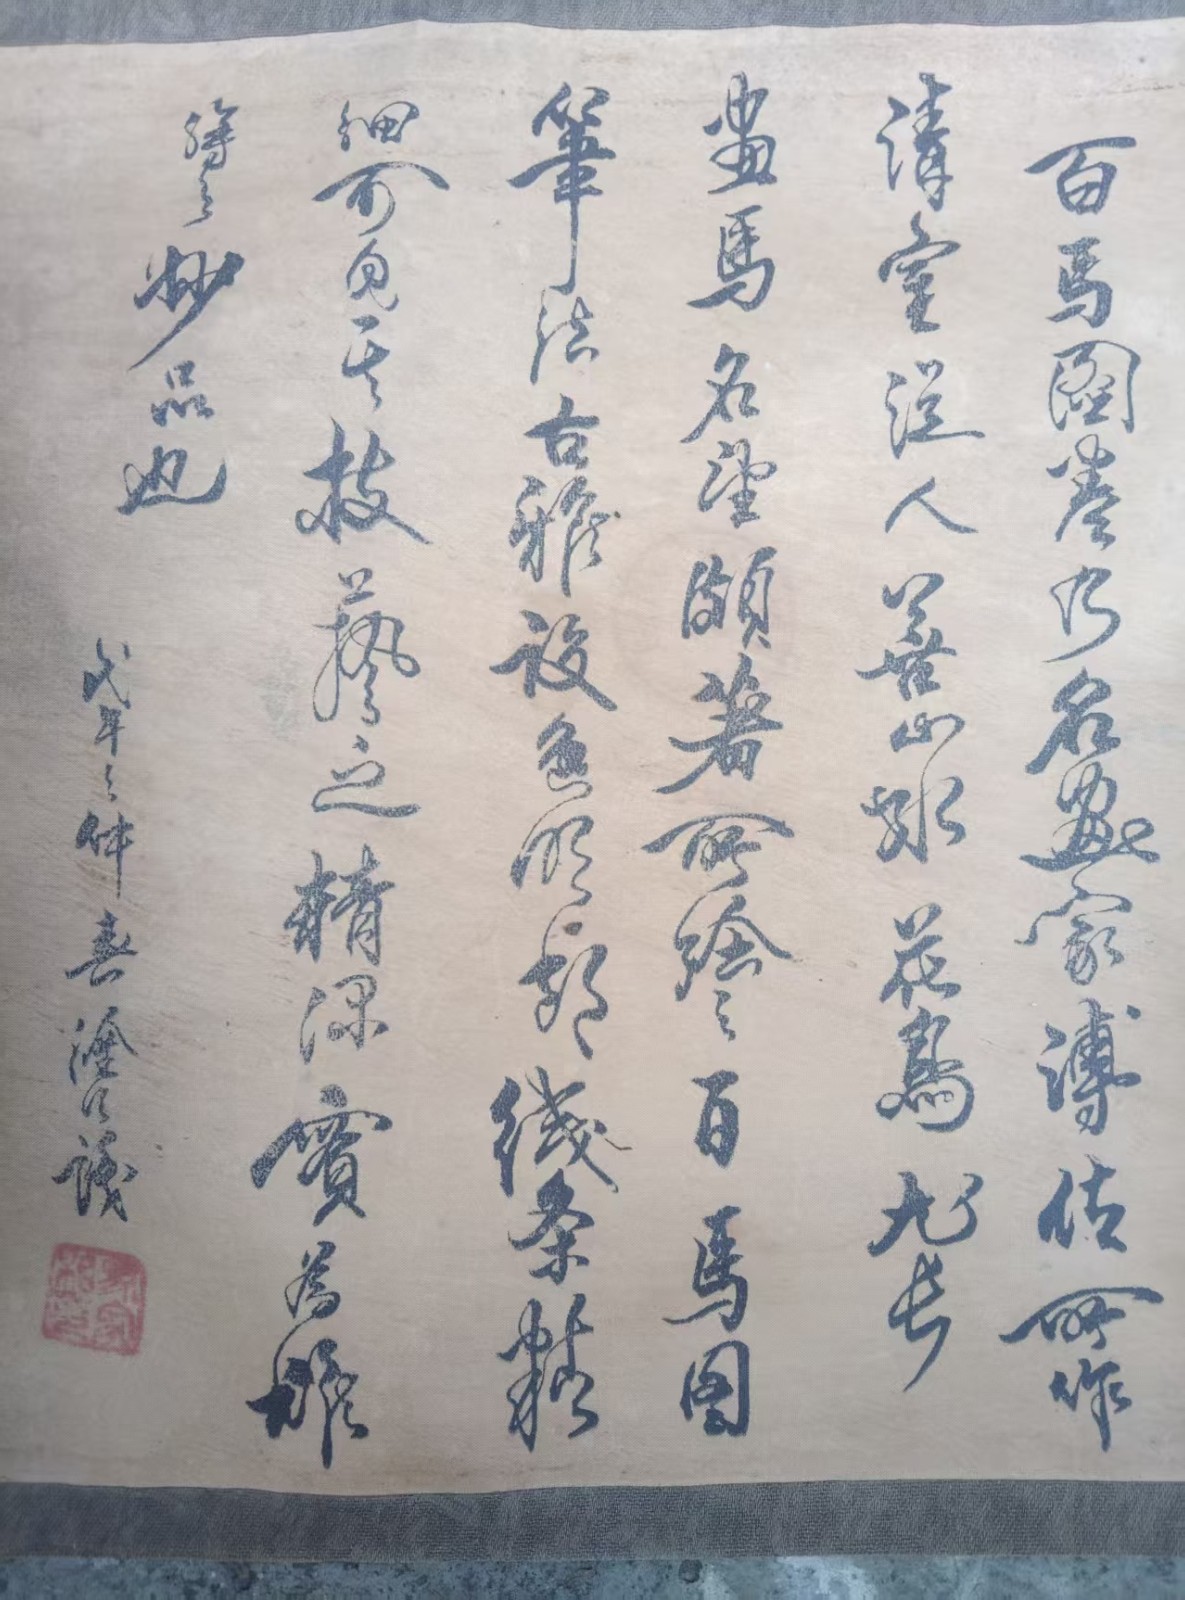 百馬圖卷乃名畫家溥佐所作
清室從人善山水花鳥尤長
畫馬名望頗著所繪之百馬图
筆法古雅設色明朗线条精
细可見其技藝之精深實為难
得之妙品也
戊年之仲春 识